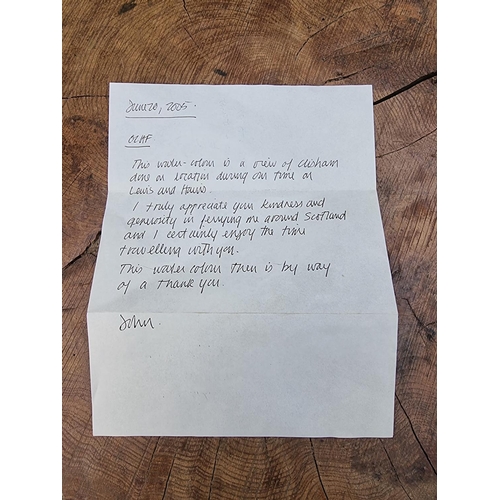 June 20, 2005.
This water-colour is a view of Clisham
done on location during our time on
Lewis and Harris.
I truly appreciate your kindness and
generosity in ferrying me around Scotland
and I certainly enjoy the time
travelling with you.
This water colour then is by way
of a thank you.
John.